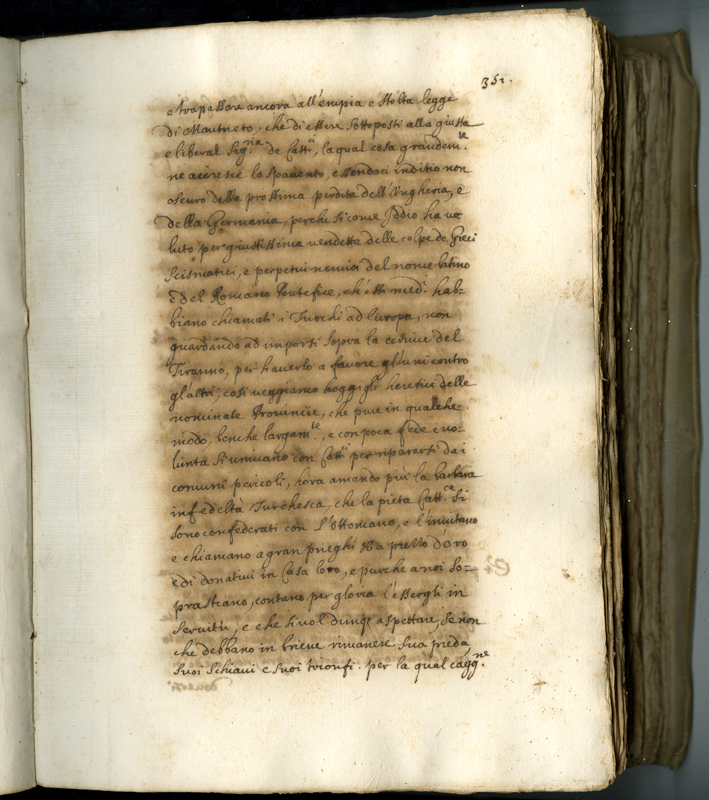 351.
e trapassare ancora all'empia e stolta legge
di Mautneto, che di essere sottoposti alla giusta
e liberal Sig.ria de Catt.ci, la qual cosa grandem.te
ne acresce lo spavento, essendoci inditio non
oscuro della prossima perdita dell'Ungheria, e
della Germania, perche si come Iddio ha vo
luto per giustissima vendetta delle colpe de Greci
Scismatici, e perpetui nemici del nome latino
e del Romano Pontefice, ch'essi med.i hab-
biano chiamati i Turchi ad Europa, non
guardando ad imporsi sopra la cervice del
Tiranno, per haverlo a favore gl'uni contro
gl'altri, così veggiamo hoggi gli heretici delle
nominate Provincie, che pure in qualche
modo, benche largam.te, e con poca fede e vo-
luntà si univano con Catt.ci per ripararsi dai
comuni pericoli, hora amando più la barbara
infedeltà Turchesca, che la pietà Catt.ca si
sono confederati con l'Ottomano, e l'invitano
e chiamano a gran prieghi et a prezzo d'oro
e di donativi in Casa loro, e purche a noi so-
prastiano, contano per gloria l'essergli in
servitù, e che si vol dunq: aspettare, se non
che debbano in brieve rimanere sua preda
suoi schiavi e suoi trionfi. per la qual cagg.ne